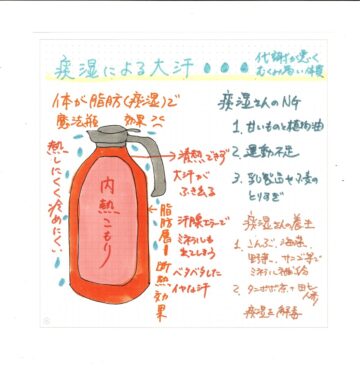 痰湿による大汗
代謝が悪く
むくみ易い体質
体が脂肪(痰湿)で
魔法瓶 効果
熱しにくく冷めにくい
内熱こもり
清熱できず
大汗が
ふき出る
汗腺エラーで
ミネラルも
出てしまう
ベタベタした
イヤな汗
脂肪層=断熱効果
痰湿さんのNG
1. 甘いものと植物油
2. 運動不足
3. 乳製品や小麦の
とりすぎ
痰湿さんの養生
1. こんぶ、海藻、
野菜、サンゴ等で
ミネラル補給
2. タンポポ茶+田七
人参
痰湿を解毒